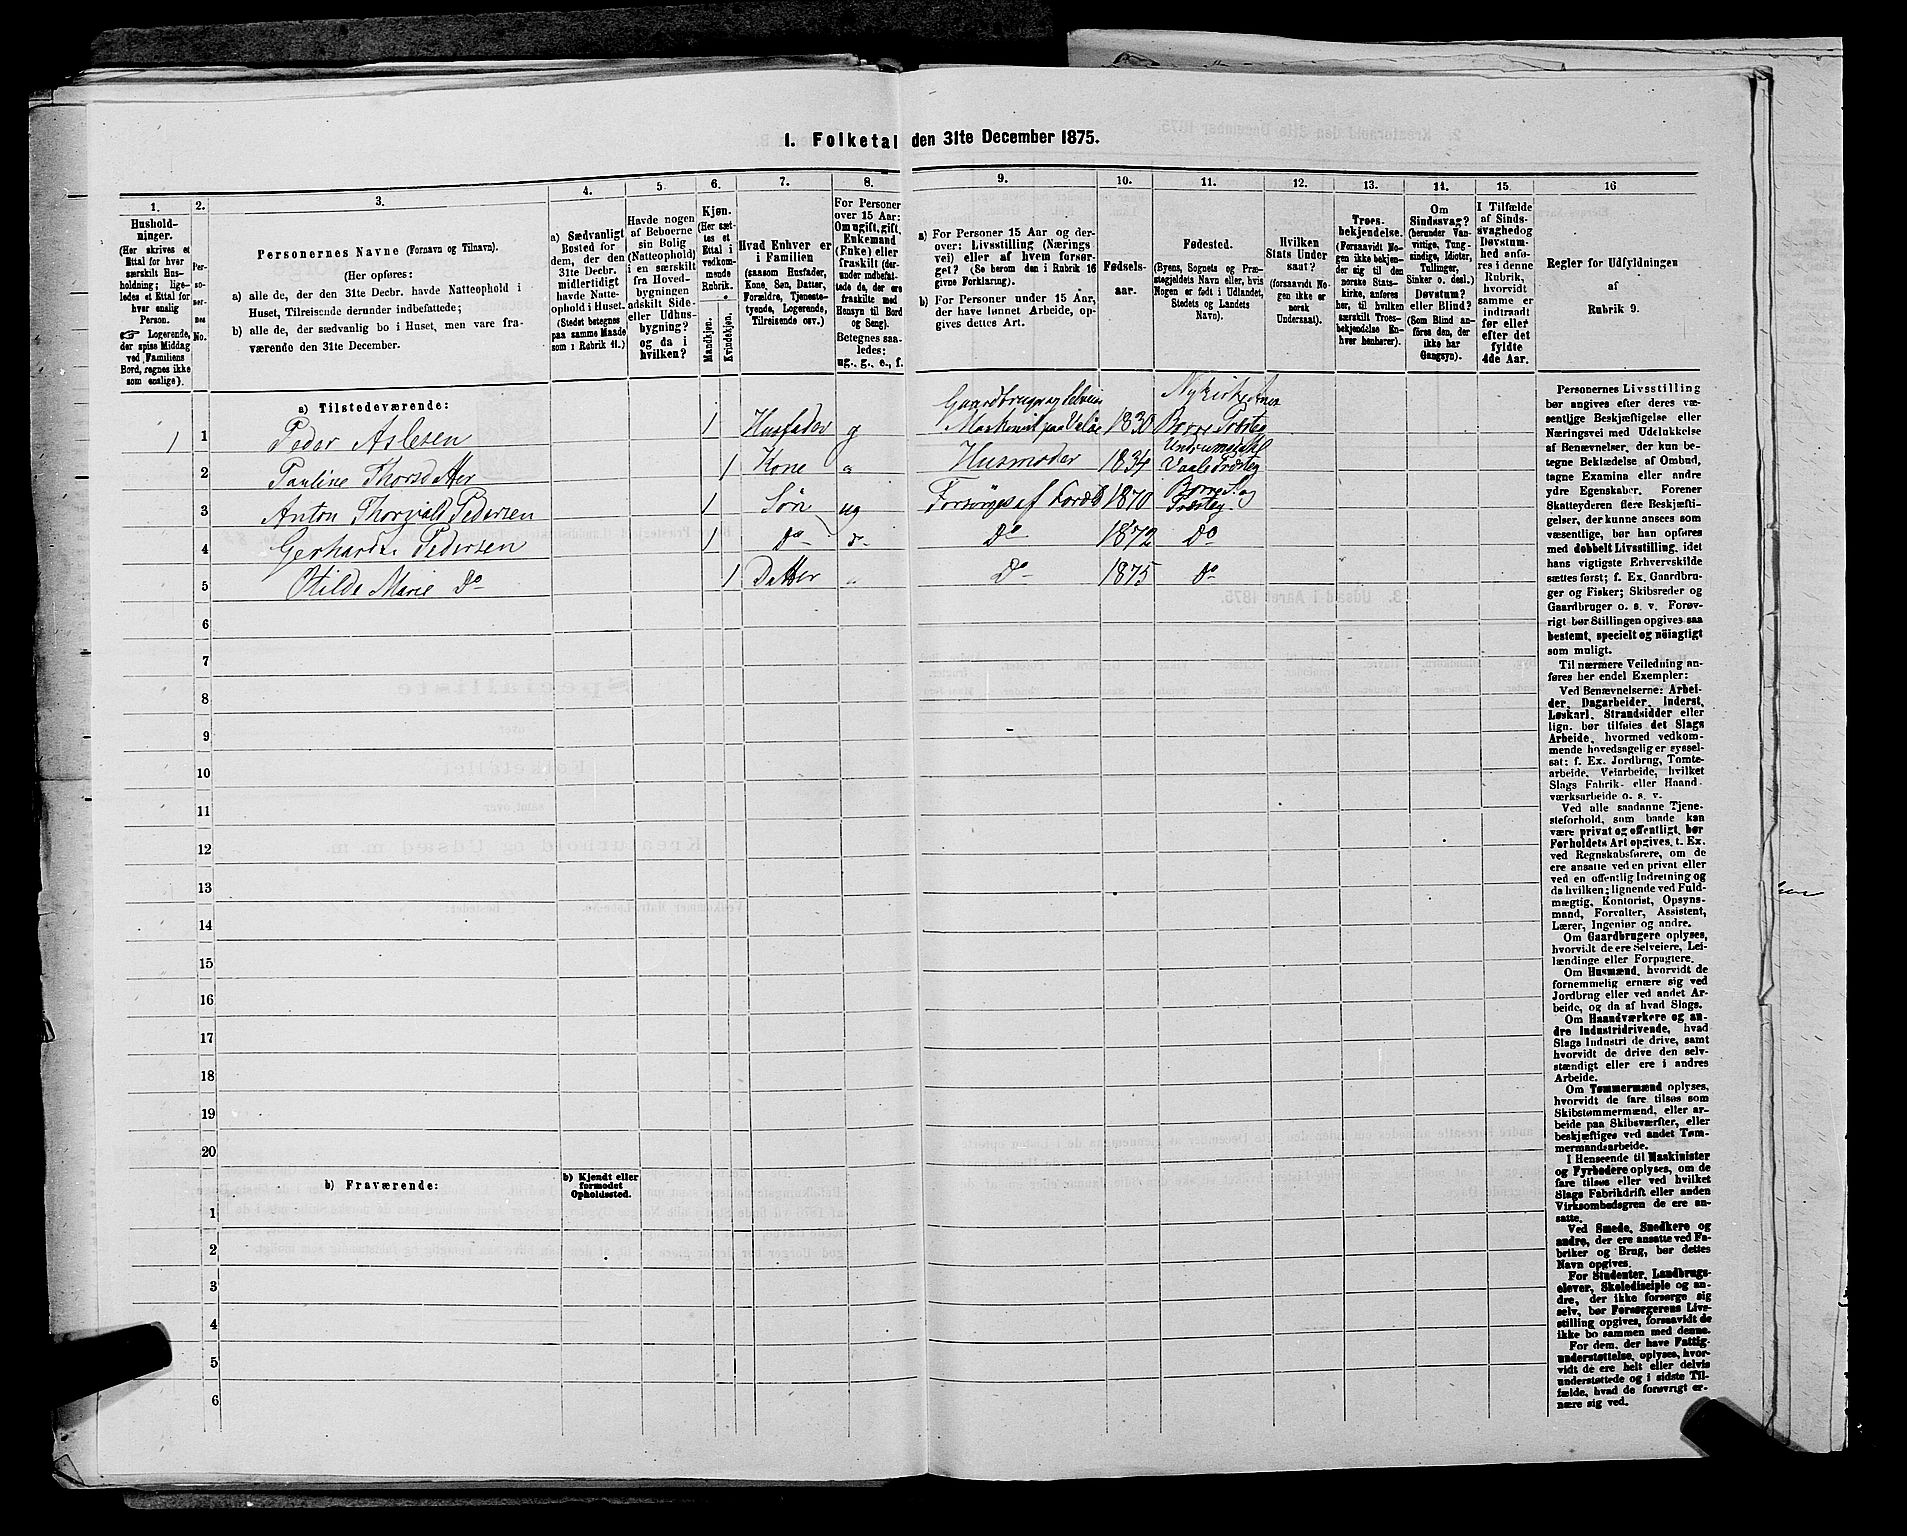 1. Folketal den 31te December 1875.
1.
2.
3.
4.
5.
6.
7.
8.
9.
10.
11.
12.
13.
14.
15.
16
Hushold-
ninger.
(Her skrives et
Ettal for hver
særskilt Hus-
holdning; lige-
ledes et Ettal for
hver enslig
Person.
☞ Logerende,
der spise Middag
ved Familiens
Bord, regnes ikke
som enslige).
Per-
so-
ner-
nes
No.
Personernes Navne (Fornavn og Tilnavn).
(Her opføres:
a) alle de, der den 31te Decbr. havde Natteophold i
Huset, Tilreisende derunder indbefattede;
b) alle de, der sædvanlig bo i Huset, men vare fra-
værende den 31te December.
a) Sædvanligt
Bosted for
dem, der den
31te Decbr.
midlertidigt
havde Natte-
ophold i Huset.
(Stedet betegnes
paa samme Maade
som i Rubrik 11.)
Havde nogen
af Beboerne
sin Bolig
(Natteophold)
i en særskilt
fra Hoved-
bygningen
adskilt Side-
eller Udhus-
bygning?
og da i
hvilken?
Kjøn.
(Her sæt-
tes et
Ettal i
vedkom-
mende
Rubrik.
Mandkjøn.
Kvindekjøn.
Hvad Enhver er
i Familien
(saasom Husfader,
Kone, Søn, Datter,
Forældre, Tjeneste-
tyende, Logerende,
Tilreisende osv.)
For Personer
over 15 Aar:
Om ugift, gift,
Enkemand
(Enke) eller
fraskilt (der-
under indbefat-
tede de, der ere
fraskilte med
Hensyn til Bord
og Seng).
Betegnes saa-
ledes:
ug., g., e., f.
a) For Personer 15 Aar og der-
over: Livsstilling (Nærings
vei) eller af hvem forsør-
get? (Se herom den i Rubrik 16
givne Forklaring).
b) For Personer under 15 Aar,
der have lønnet Arbeide, op-
gives dettes Art.
Fødsels-
aar.
Fødested.
(Byens, Sognets og Præ-
stegjeldets Navn eller, hvis
Nogen er født i Udlandet,
Stedets og Landets
Navn).
Hvilken
Stats Under
saat?
(forsaavidt No-
gen ikke er
norsk
Undersaat).
Troes-
bekjendelse.
(Forsaavidt No-
gen ikke bekjen-
der sig til den
norske Stats-
kirke, anføres
her, til hvilken
særskilt Troes-
bekjendelse En-
hver henhører).
Om
Sindssvag?
(herunder Van-
vittige, Tung-
sindige, Idioter,
Tullinger,
Sinker o. desl.)
Døvstum?
eller Blind?
(Som Blind an-
føres den, der
ikke har
Gangsyn).
I Tilfælde
af Sinds-
svaghedog
Døvstum-
hed anfø-
res i denne
Rubrik,
hvorvidt
samme er
indtraadt
før eller
efter det
fyldte
4de Aar.
Regler for Udfyldningen
af
Rubrik 9.
a) Tilstedeværende:
1 1 Peder Aslesen 1 Husfader g Gaardbruger og Selveier Maskinist paa Valøe 1830 Nykirke Anex Borre Præsteg
2 Pauline Thorsdatter 1 Kone " Husmoder 1834 Undrumsdahl Vaale Præsteg
3 Anton Thorvald Pedersen 1 Søn ug Forsørges af Foræld 1870 Borre S. og Præsteg.
4 Gerhardt Pedersen 1 Do " Do 1872 Do
5 Otilde Marie Do 1 Datter " Do 1875 Do
6
7
8
9
10
11
12
13
14
15
16
17
18
19
20
b) Fraværende:
b) Kjendt eller
formodet
Opholdssted.
1
2
3
4
5
6
Personernes Livsstilling
bør angives efter deres væ-
sentlige Beskjæftigelse eller
Næringsvei med Udelukkelse
af Benævnelser, der kun be-
tegne Beklædelse af Ombud,
tagne Examina eller andre
ydre Egenskaber. Forener
Skatteyderen flere Beskjæfti-
gelser, der kunne ansees som
væsentlige, bør han opføres
med dobbelt Livsstilling, idet
hans vigtigste Erhvervskilde
sættes først; f. Ex. Gaardbru-
ger og Fisker; Skibsreder og
Gaardbruger o. s. v. Forøv-
rigt bør Stillingen opgives saa
bestemt, specielt og nöiagtigt
som muligt.
Til nærmere Veiledning an-
føres her endel Exempler:
Ved Benævnelserne: Arbei-
der, Dagarbeider, Inderst,
Løskarl, Strandsidder eller
lign. bør tilføies det Slags
Arbeide, hvormed vedkom-
mende hovedsagelig er syssel-
sat; f. Ex. Jordbrug, Tomte-
arbeide, Veiarbeide, hvilket
Slags Fabrik- eller Haand-
værksarbeide o. s. v.
Ved alle saadanne Tjene-
steforhold, som baade kan
være privat og offentligt, bør
Forholdets Art opgives, t. Ex.
ved Regnskabsførere, om de
ere ansatte ved en privat eller
ved en offentlig Indretning og
da hvilken; lignende ved Fuld-
mægtig, Kontorist, Opsyns-
mand, Forvalter, Assistent,
Lærer, Ingeniør og andre.
Om Gaardbrugere oplyses,
hvorvidt de ere Selveiere, Lei-
lændinge eller Forpagtere.
Om Husmænd, hvorvidt de
fornemmelig ernære sig ved
Jordbrug eller ved andet Ar-
beide, og da af hvad Slags.
Om Haandværkere og an-
dre Industridrivende, hvad
Slags Industri de drive, samt
hvorvidt de drive den selv-
stændigt eller ere i andres
Arbeide.
Om Tømmermænd oplyses,
hvorvidt de fare tilsøs som
Skibstømmermænd, eller ar-
beide paa Skibsværfter, eller
beskjæftiges ved andet Tøm-
mermandsarbeide.
I Henseende til Maskinister
og Fyrbødere oplyses, om de
fare tilsøs eller ved hvilket
Slags Fabrikdrift eller anden
Virksombødsgren de ere an-
satte.
Ved Smede, Snedkere og
andre, der ere ansatte ved Fa-
briker og Brug, bør dettes
Navn opgives.
For Studenter, Landbrugs-
elever, Skoledisciple og an-
dre, der ikke forsørge sig
selv, bør Forsørgerens Livs-
stilling opgives, forsaavidt de
ikke bo sammen med denne.
For dem, der have Fattig-
understøttelse, oplyses, hvor-
vidt de ere helt eller delvis
understøttede og i sidste Til-
fælde, hvad de forøvrigt er-
nære sig ved.